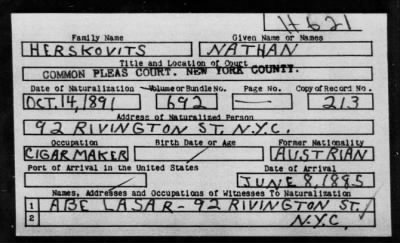 H 621
Family Name Given Name or Names
HERSKOVITS NATHAN
Title and Location of Court
COMMON PLEAS COURT. NEW YORK COUNTY.
Date of Naturalization Volume or Bundle No. Page No. Copy of Record No.
OCT. 14, 1891 692 — 213
Address of Naturalized Person
92 RIVINGTON ST. N.Y.C.
Occupation Birth Date or Age Former Nationality
CIGAR MAKER AUSTRIAN
Port of Arrival in the United States Date of Arrival
JUNE 8, 1885
Names, Addresses and Occupations of Witnesses To Naturalization
1 ABE LASAR - 92 RIVINGTON ST.
2 N.Y.C.